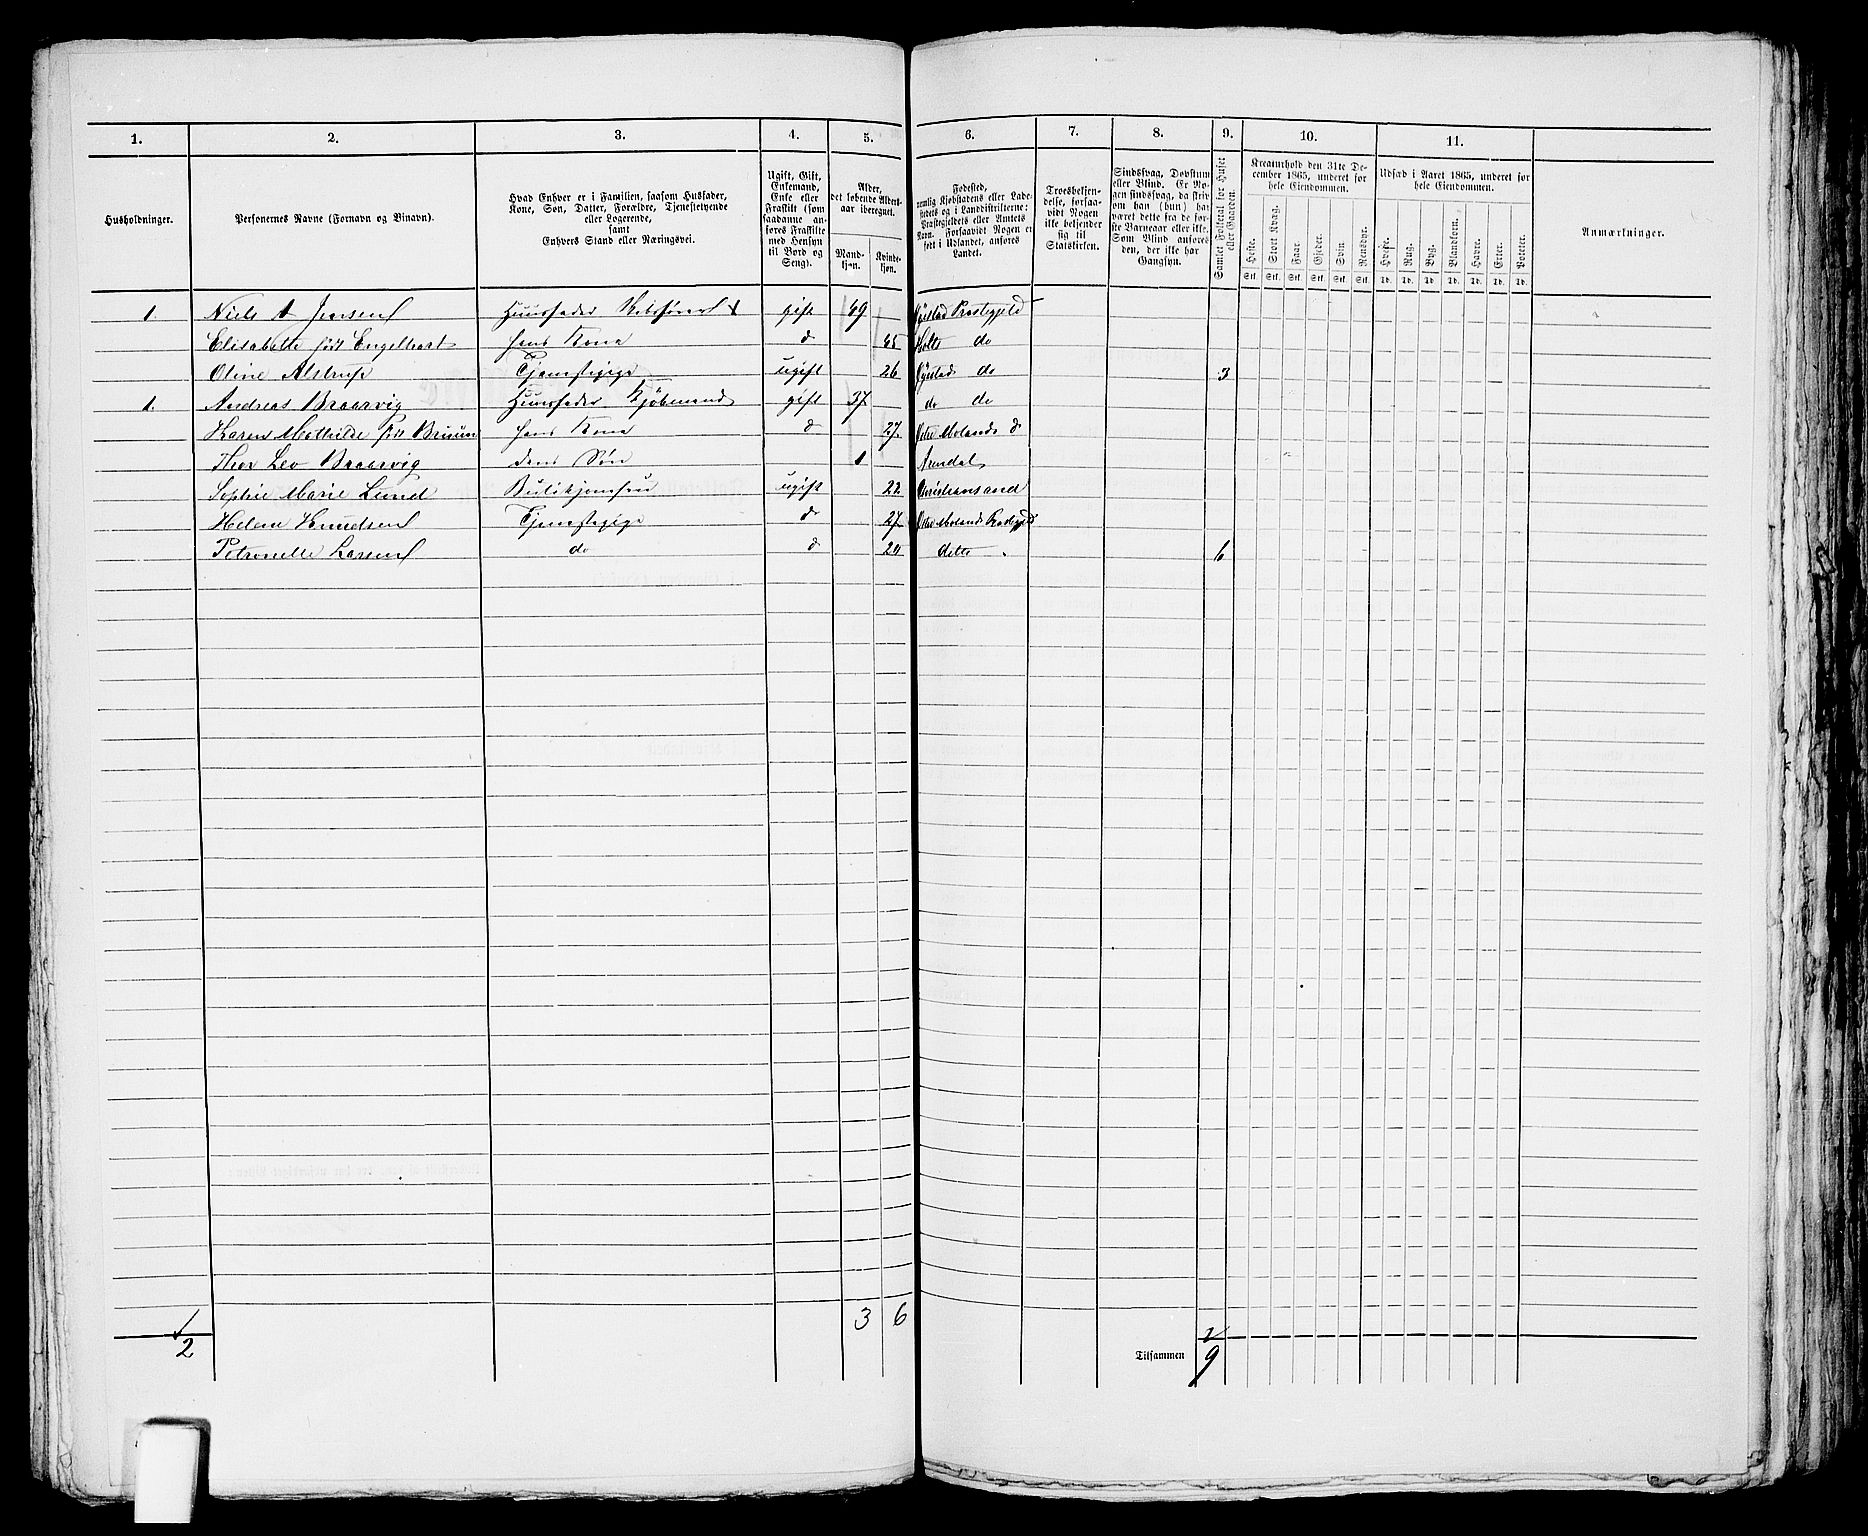 1. 2. 3. 4. 5. 6. 7. 8. 9. 10. 11.
Husholdninger.
Personernes Navne (Fornavn og Binavn).
Hvad Enhver er i Familien, saasom Husfader,
Kone, Søn, Datter, Forældre, Tjenestetyende
eller Logerende,
samt
Enhvers Stand eller Næringsvei.
Ugift, Gift,
Enkemand,
Enke eller
Fraskilt (som
saadanne an-
føres Fraskilte
med Hensyn
til Bord og
Seng).
Alder,
det løbende Alders-
aar iberegnet.
Mand-
kjøn.
Kvinde-
kjøn.
Fødested,
nemlig Kjøbstadens eller Lade-
stedets og i Landdistrikterne:
Præstegjeldets eller Amtets
Navn. Forsaavidt Nogen er
født i Udlandet, anføres
Landet.
Troesbekjen-
delse, forsaa-
vidt Nogen
ikke bekjender
sig til
Statskirken.
Sindssvag, Døvstum
eller Blind. Er No-
gen sindssvag, da skriv
om han (hun) har
været dette fra de før-
ste Barneaar eller ikke.
Som Blind anføres
den, der ikke har
Gangsyn.
Samlet Folketal for Huset
eller Gaarden.
Kreaturhold den 31te De-
cember 1865, underet for
hele Eiendommen.
Heste. Stort Kvæg. Faar. Gjeder. Svin. Rensdyr.
Stk. Stk. Stk. Stk. Stk. Stk.
Udsæd i Aaret 1865, underet for
hele Eiendommen.
Hvede. Rug. Byg. Blandkorn. Havre. Erter. Poteter.
Td. Td. Td. Td. Td. Td. Td.
Anmærkninger.
1. Niels A Jensen Huusfader Skibsfører gift 49 Øiestad Præstegjeld
Elisabethe født Engelhart hans Kone do 45 Holts do
Oline Alstrup Tjenestepige ugift 26 Øiestads do 3
1. Andreas Braarvig Huusfader Kjøbmand gift 37 do do
Karen Mathilde født Bruun hans Kone do 27 Østre Molands do
Thor Leo Braarvig deres Søn 1 Arendal
Sophie Marie Lund Butikjomfru ugift 22 Christiansand
Helene Knudsen Tjenestepige do 27 Østre Molands Præstegjeld
Petronelle Larsen do do 20 dette 6
2 3 6
Tilsammen 9